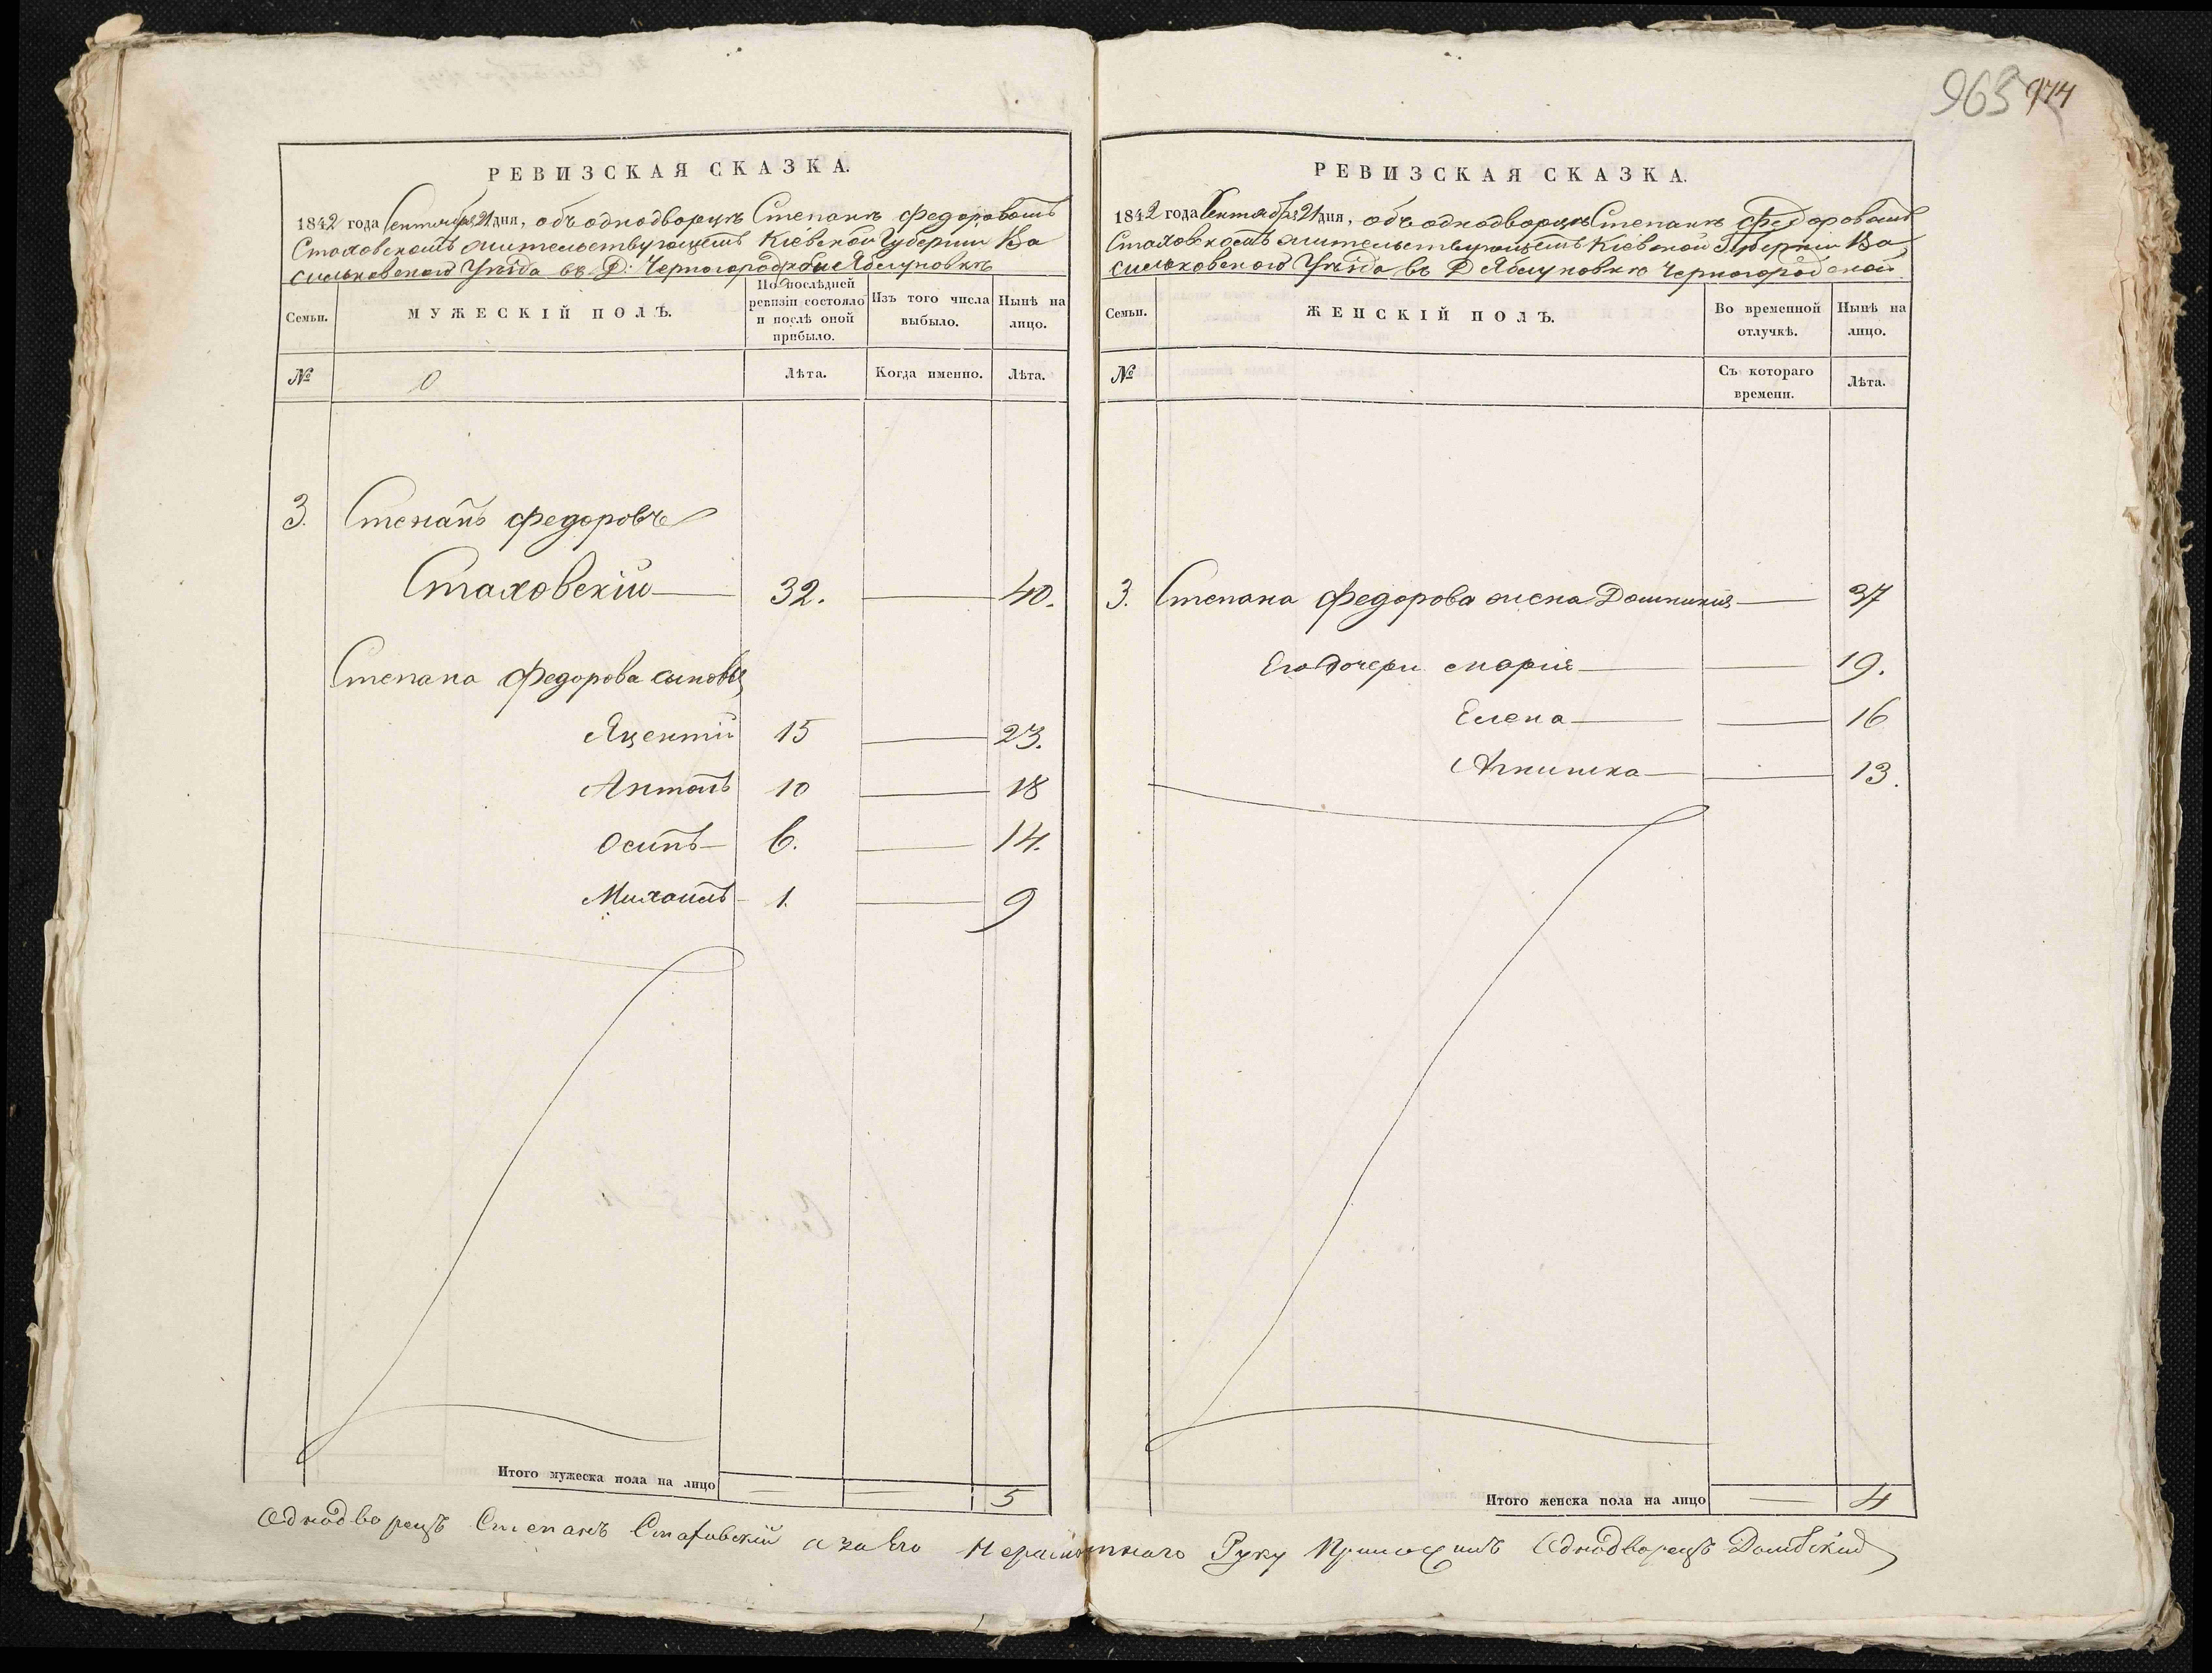 963 974
РЕВИЗСКАЯ СКАЗКА.
1842 года Сентября 21 дня, объ однодворцѣ Степанѣ Федоровомъ
Стаховскомъ жительствующемъ Кіевской Губерніи Ва
сильковскаго Уѣзда въ Д: Черногородской Яблуновкѣ
Семьи.
МУЖЕСКІЙ ПОЛЪ.
По последней ревизіи состояло и послѣ оной прибыло.
Изъ того числа выбыло.
Нынѣ на лицо.
№
Лѣта.
Когда именно.
Лѣта.
3. Степанъ Федоровъ
Стаховскій 32. 40.
Степана Федорова сыновья
Яцентій 15 23.
Антонъ 10 18
Осипъ 6. 14.
Михаилъ 1. 9
Итого мужеска пола на лицо 5
РЕВИЗСКАЯ СКАЗКА.
1842 года Сентября 21 дня, объ однодворцѣ Степанѣ Федоровомъ
Стаховскомъ жительствующемъ Кіевской Губерніи Ва
сильковскаго Уѣзда въ Д Яблуновкѣ Черногородской
Семьи.
ЖЕНСКІЙ ПОЛЪ.
Во временной отлучкѣ.
Нынѣ на лицо.
№
Съ котораго времени.
Лѣта.
3. Степана Федорова жена Домникія 37
Его дочери Марія 19.
Елена 16
Агнишка 13.
Итого женска пола на лицо 4
Однодворецъ Степанъ Стаховскій а за Его Неграмотнаго Руку Приложилъ Однодворецъ Домбскій